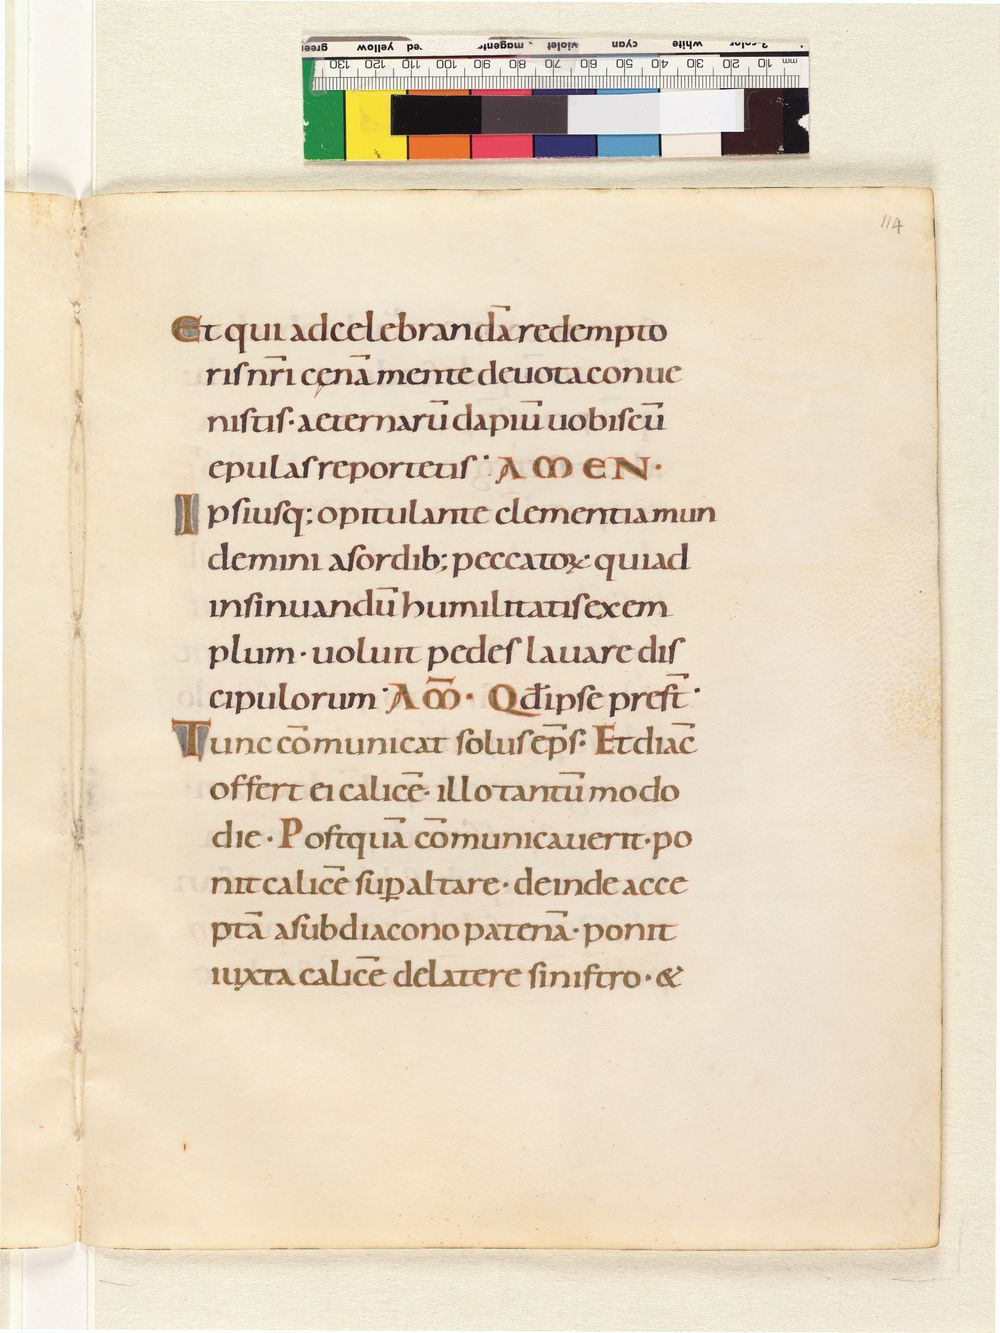 green yellow red magenta violet cyan white 3-color
130 120 110 100 90 80 70 60 50 40 30 20 10 mm
114
Et qui ad celebrandā redempto
riſ nr̄i cęnā mente deuota conue
niſtiſ · aeternarū dapiū uobiſcū
epulaſ reportetiſ · AMEN ·
Ipſiuſq; opitulante clementia mun
demini aſordib; peccatoꝝ · quia ad
inſinuandū humilitatiſ exem
plum · uoluit pedeſ lauare diſ
cipulorum · AM̄ · Qđ ipſe preſt̄ ·
Tunc cōmunicat ſoluſ ep̄ſ · Et diac̄
offert ei calicē · illo tantū modo
die · Poſtquā cōmunicauerit · po
nit calicē ſuꝑ altare · deinde acce
ptā a ſubdiacono patenā · ponit
iuxta calicē de latere ſiniſtro · &